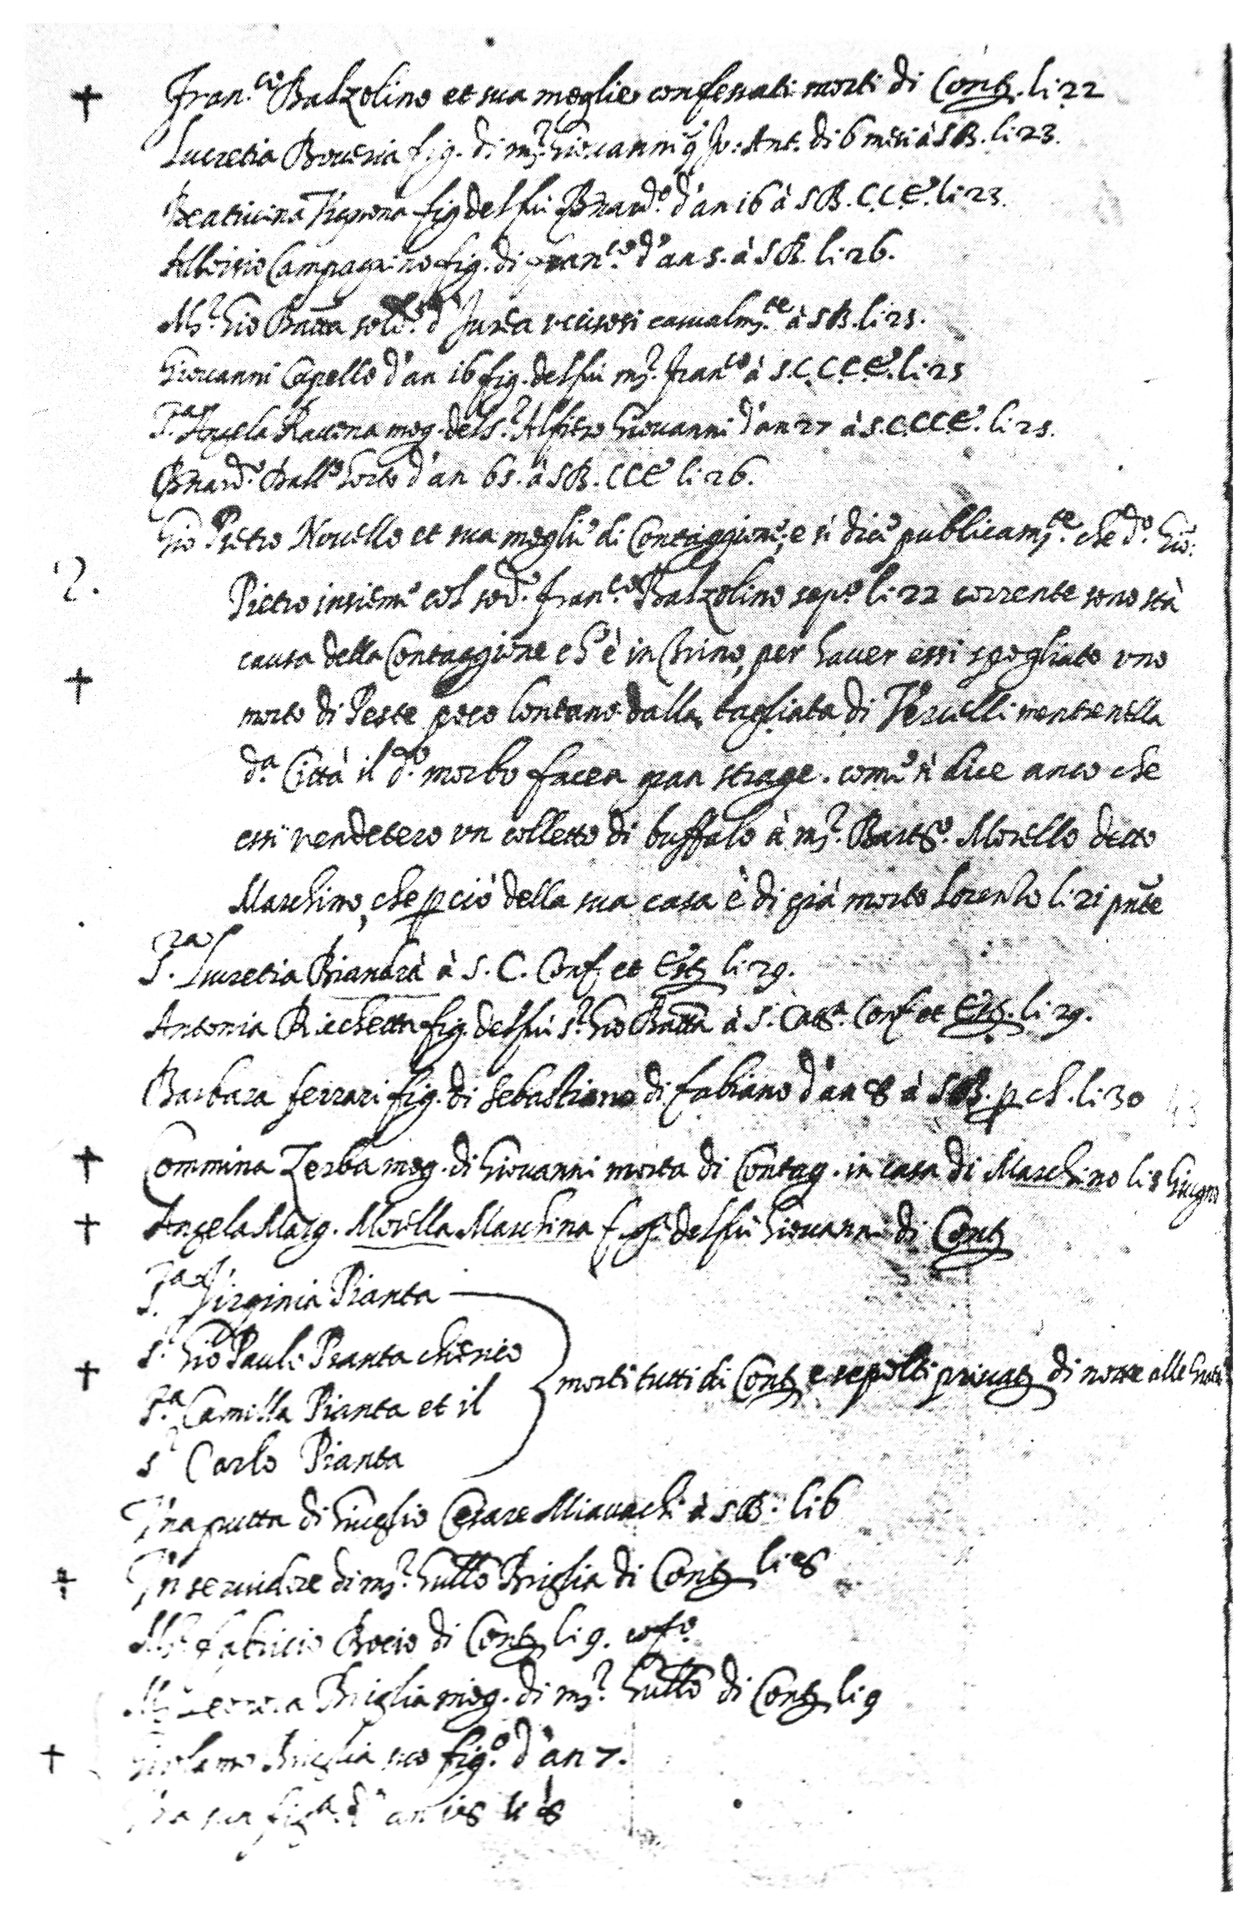 Fran.co Balzolino et sua moglie confessati morti di Contag. li 22
Lucretia Boveria fig. di mr. Giovanni q Jo: Ant. di 6 mesi à S B. li 23.
Beatricina fig del fu Bnardo. d'an 16 à S B. C.C.E. li 23.
Alloisio Campagnino fig. di Fran.co d'an 5. à S B. li 26.
Mr. Gio Batta sold.o d' uccisosi casualmte à S B. li 25.
Giovanni Capello d'an 16 fig. del fu mr. Franco à S. C. C. C. E. li 25
S.ra Angela Ravena mog. del Sr. Alfiero Giovanni d'an 27 à S. C. C C E. li 25.
Bnardo. d'an 65. à S B. C C E li 26.
Gio Pietro Novello et sua moglie di Contaggione, e si dice publicamte. che do. Gio:
2. Pietro insieme col sodo. Franco Balzolino sepo. li 22 corrente sono stà
causa della Contaggione ch'è in Trino, per haver essi spogliato uno
morto di Peste poco lontano dalla tagliata di Vercelli mentre nella
da. Città il do. morbo facea gran strage. come si dice anco che
essi vendetero un colletto di buffalo à mr. Barto. Morello detto
Maschino, che pciò della sua casa è di già morto Lorenzo li 21 pnte
S.ra Lucretia Biandrà à S. C. Conf. et Est li 29.
Antonia Richetta fig. del fu Sr. Gio Batta à S. Cata. Conf et Est. li 29.
Barbara ferrari fig. di Sebastiano di fabiano d'an 8 à S B. p ch. li 30
Commina Zerba mog. di Giovanni morta di Contag. in casa di Maschino li 8 Giugno
Angela Marg. Morella Maschina fig. del fu Giovanni di Cont
S.ra Virginia Pianta
Sr. Gio Paulo Pianta chierico
S.ra Camilla Pianta et il morti tutti di Cont e sepolti privat di notte alle
Sr Carlo Pianta
Una putta di Giuglio Cesare Miavachi à S B. li 6
Un servidore di mr. Gullo Briglia di Cont li 8
Mr. fabricio Bocio di Cont li 9.
Briglia mog. di mr. Gullo di Cont li 9
Girolamo Briglia suo figo. d'an 7.
Una sua figa. d' an